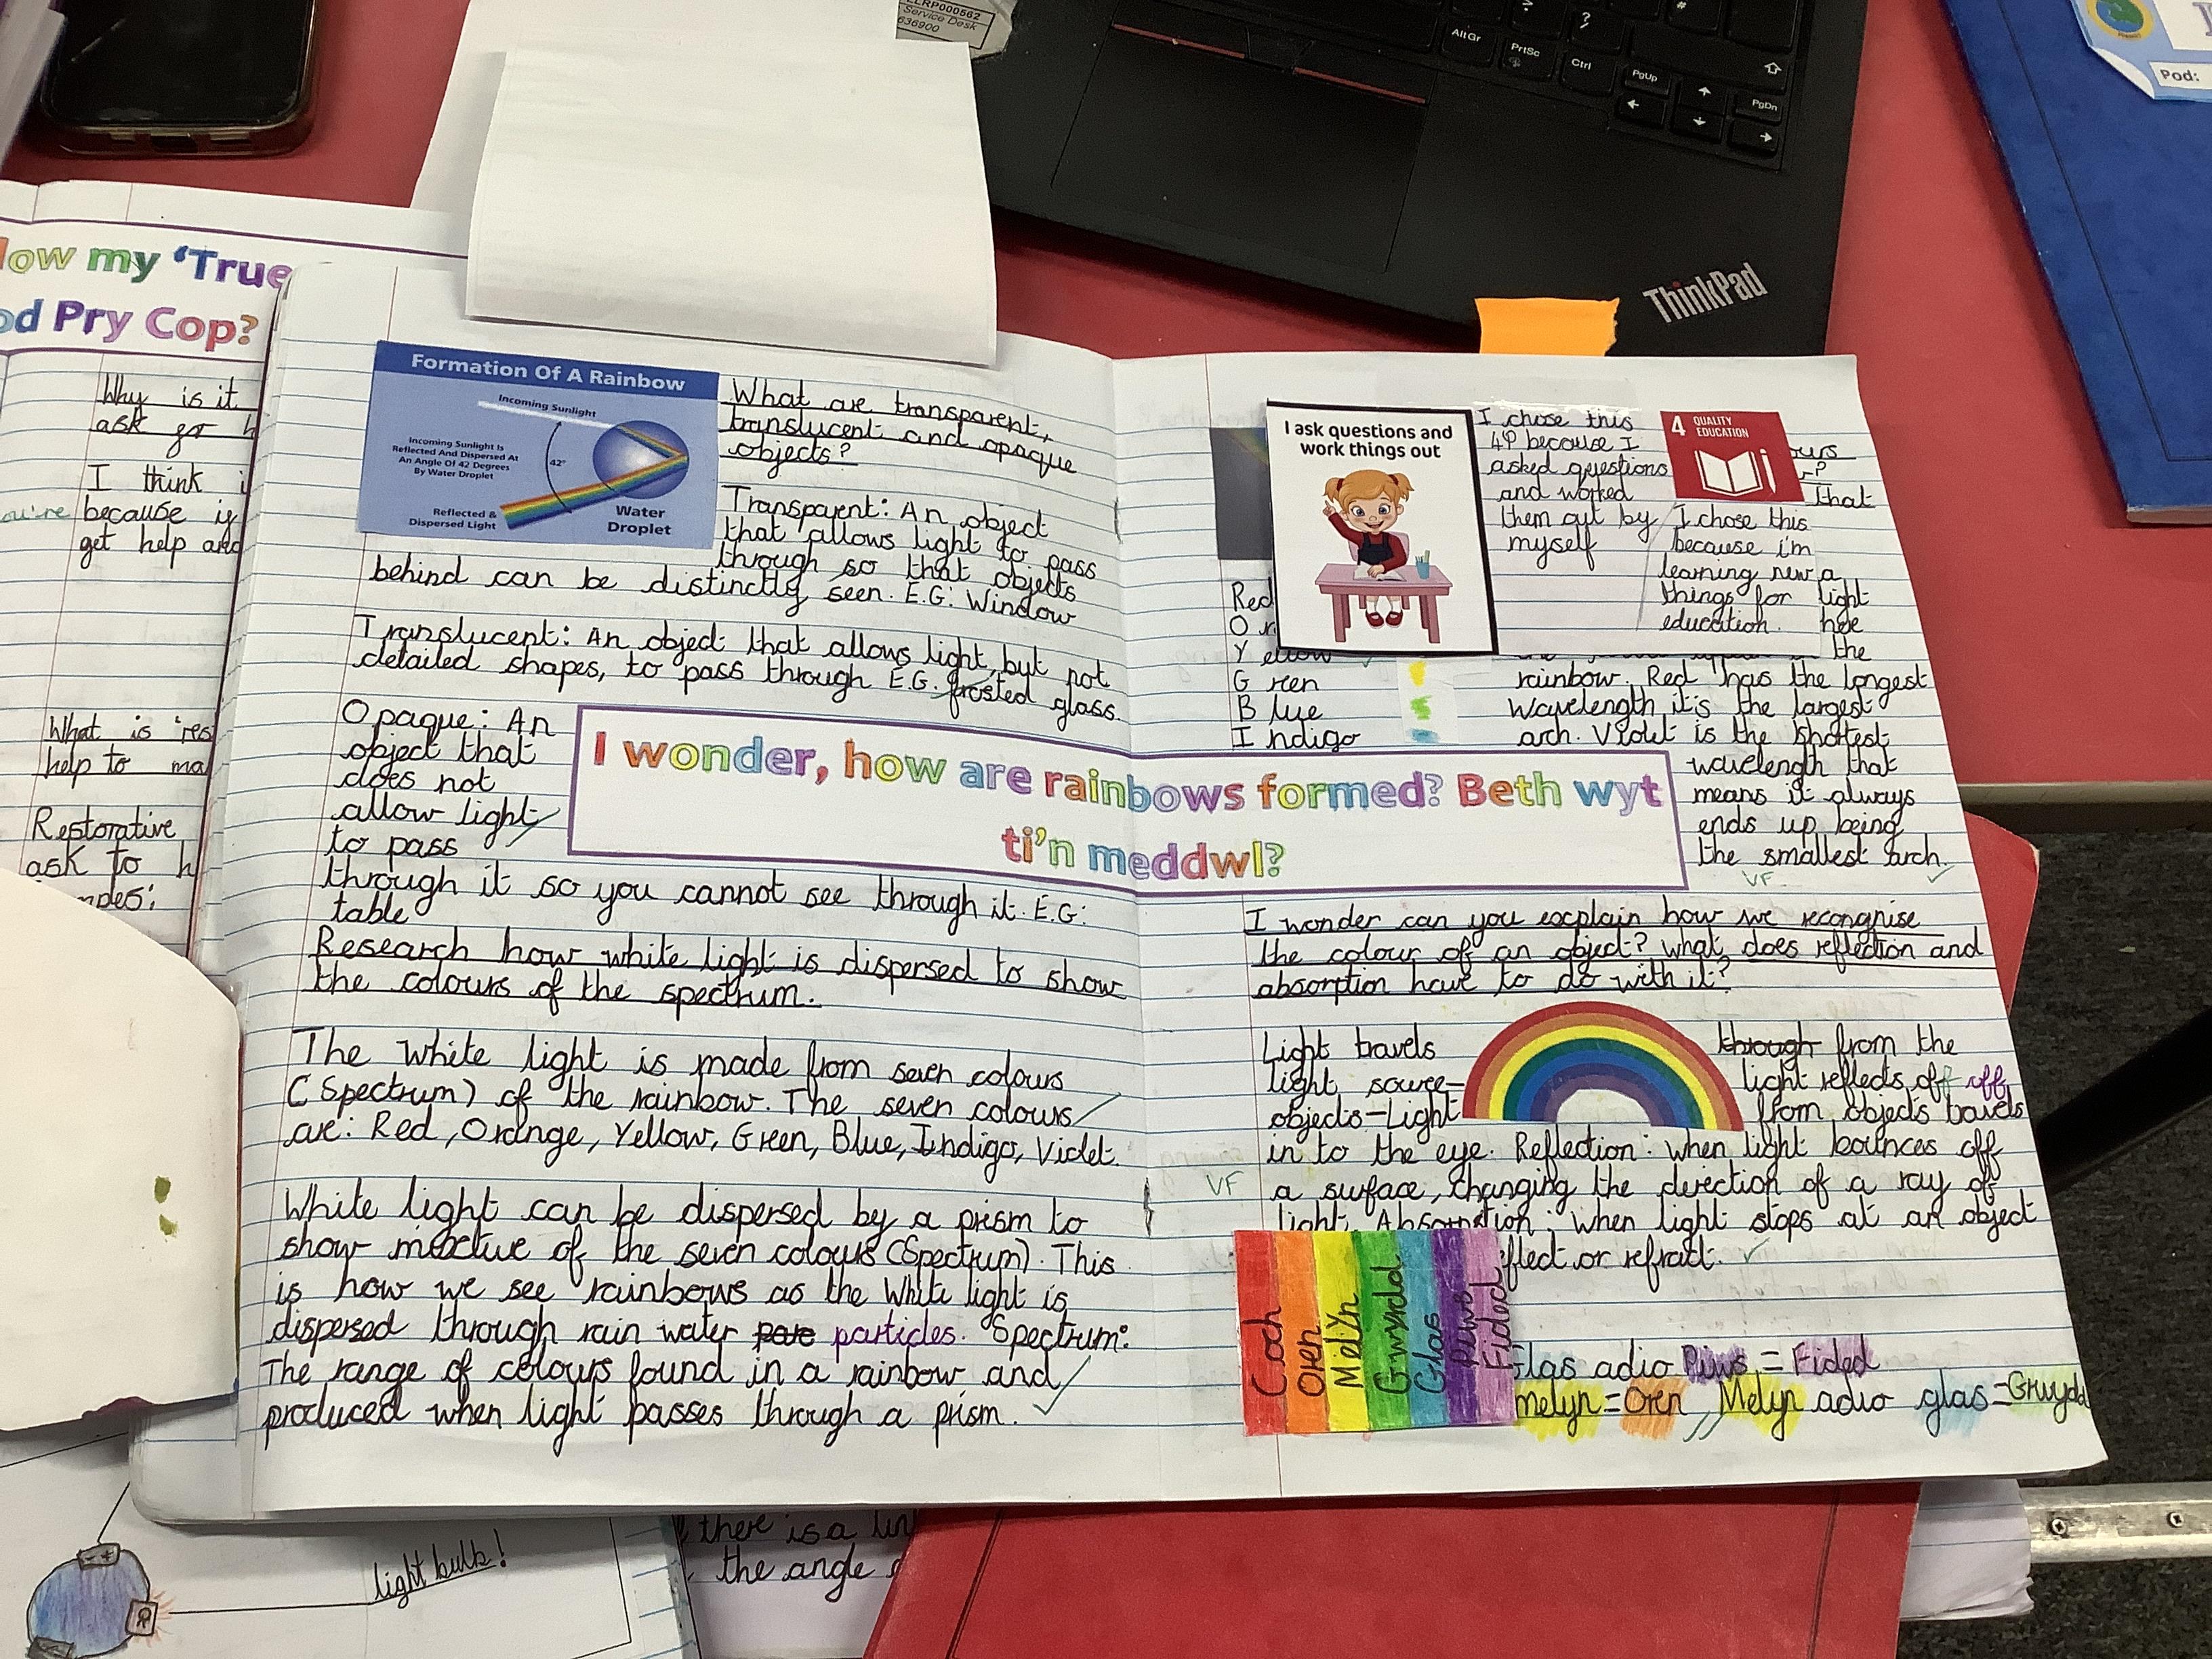 LRP000562
Service Desk
636900
?
/
#
AltGr
PrtSc
Ctrl
PgUp
PgDn
ThinkPad
Pod:
low my 'True
od Pry Cop?
Why is it
ask for h
I think i
you're because if
get help and
What is 'res
help to ma
Restorative
ask to h
Formation Of A Rainbow
Incoming Sunlight
Incoming Sunlight Is
Reflected And Dispersed At
An Angle Of 42 Degrees
By Water Droplet
42°
Reflected &
Dispersed Light
Water
Droplet
What are transparent,
translucent and opaque
objects?
Transparent: An object
that allows light to pass
through so that objects
behind can be distinctly seen. E.G: Window
Translucent: An object that allows light, but not
detailed shapes, to pass through E.G. frosted glass.
Opaque: An
object that
does not
allow light
to pass
through it so you cannot see through it. E.G:
table
I wonder, how are rainbows formed? Beth wyt
ti'n meddwl?
Research how white light is dispersed to show
the colours of the spectrum.
The white light is made from seven colours
(Spectrum) of the rainbow. The seven colours
are: Red, Orange, Yellow, Green, Blue, Indigo, Violet.
White light can be dispersed by a prism to
show mixture of the seven colours (Spectrum). This
is how we see rainbows as the White light is
dispersed through rain water particles. Spectrum:
The range of colours found in a rainbow and
produced when light passes through a prism.
I ask questions and
work things out
I chose this
4P because I
asked questions
and worked
them out by
myself
4 QUALITY
EDUCATION
ours
?
that
I chose this
because i'm
learning new a
things for light
education. hoe
the
Red
Or
Yellow
Green
Blue
Indigo
rainbow. Red has the longest
wavelength it's the largest
arch. Violet is the shortest
wavelength that
means it always
ends up being
the smallest arch.
VF
I wonder can you explain how we recongnise
the colour of an object? what does reflection and
absorption have to do with it?
Light travels through from the
light source - light reflects off off
objects - Light from objects travels
in to the eye. Reflection: when light bounces off
VF a surface, changing the direction of a ray of
light. Absorption: when light stops at an object
eflect or refract.
Coch
Oren
Melyn
Gwyrdd
Glas
Piws
Fioled
Glas adio Piws = Fioled
melyn = Oren, Melyn adio glas = Gwyrdd
light bulb!
there is a lin
the angle